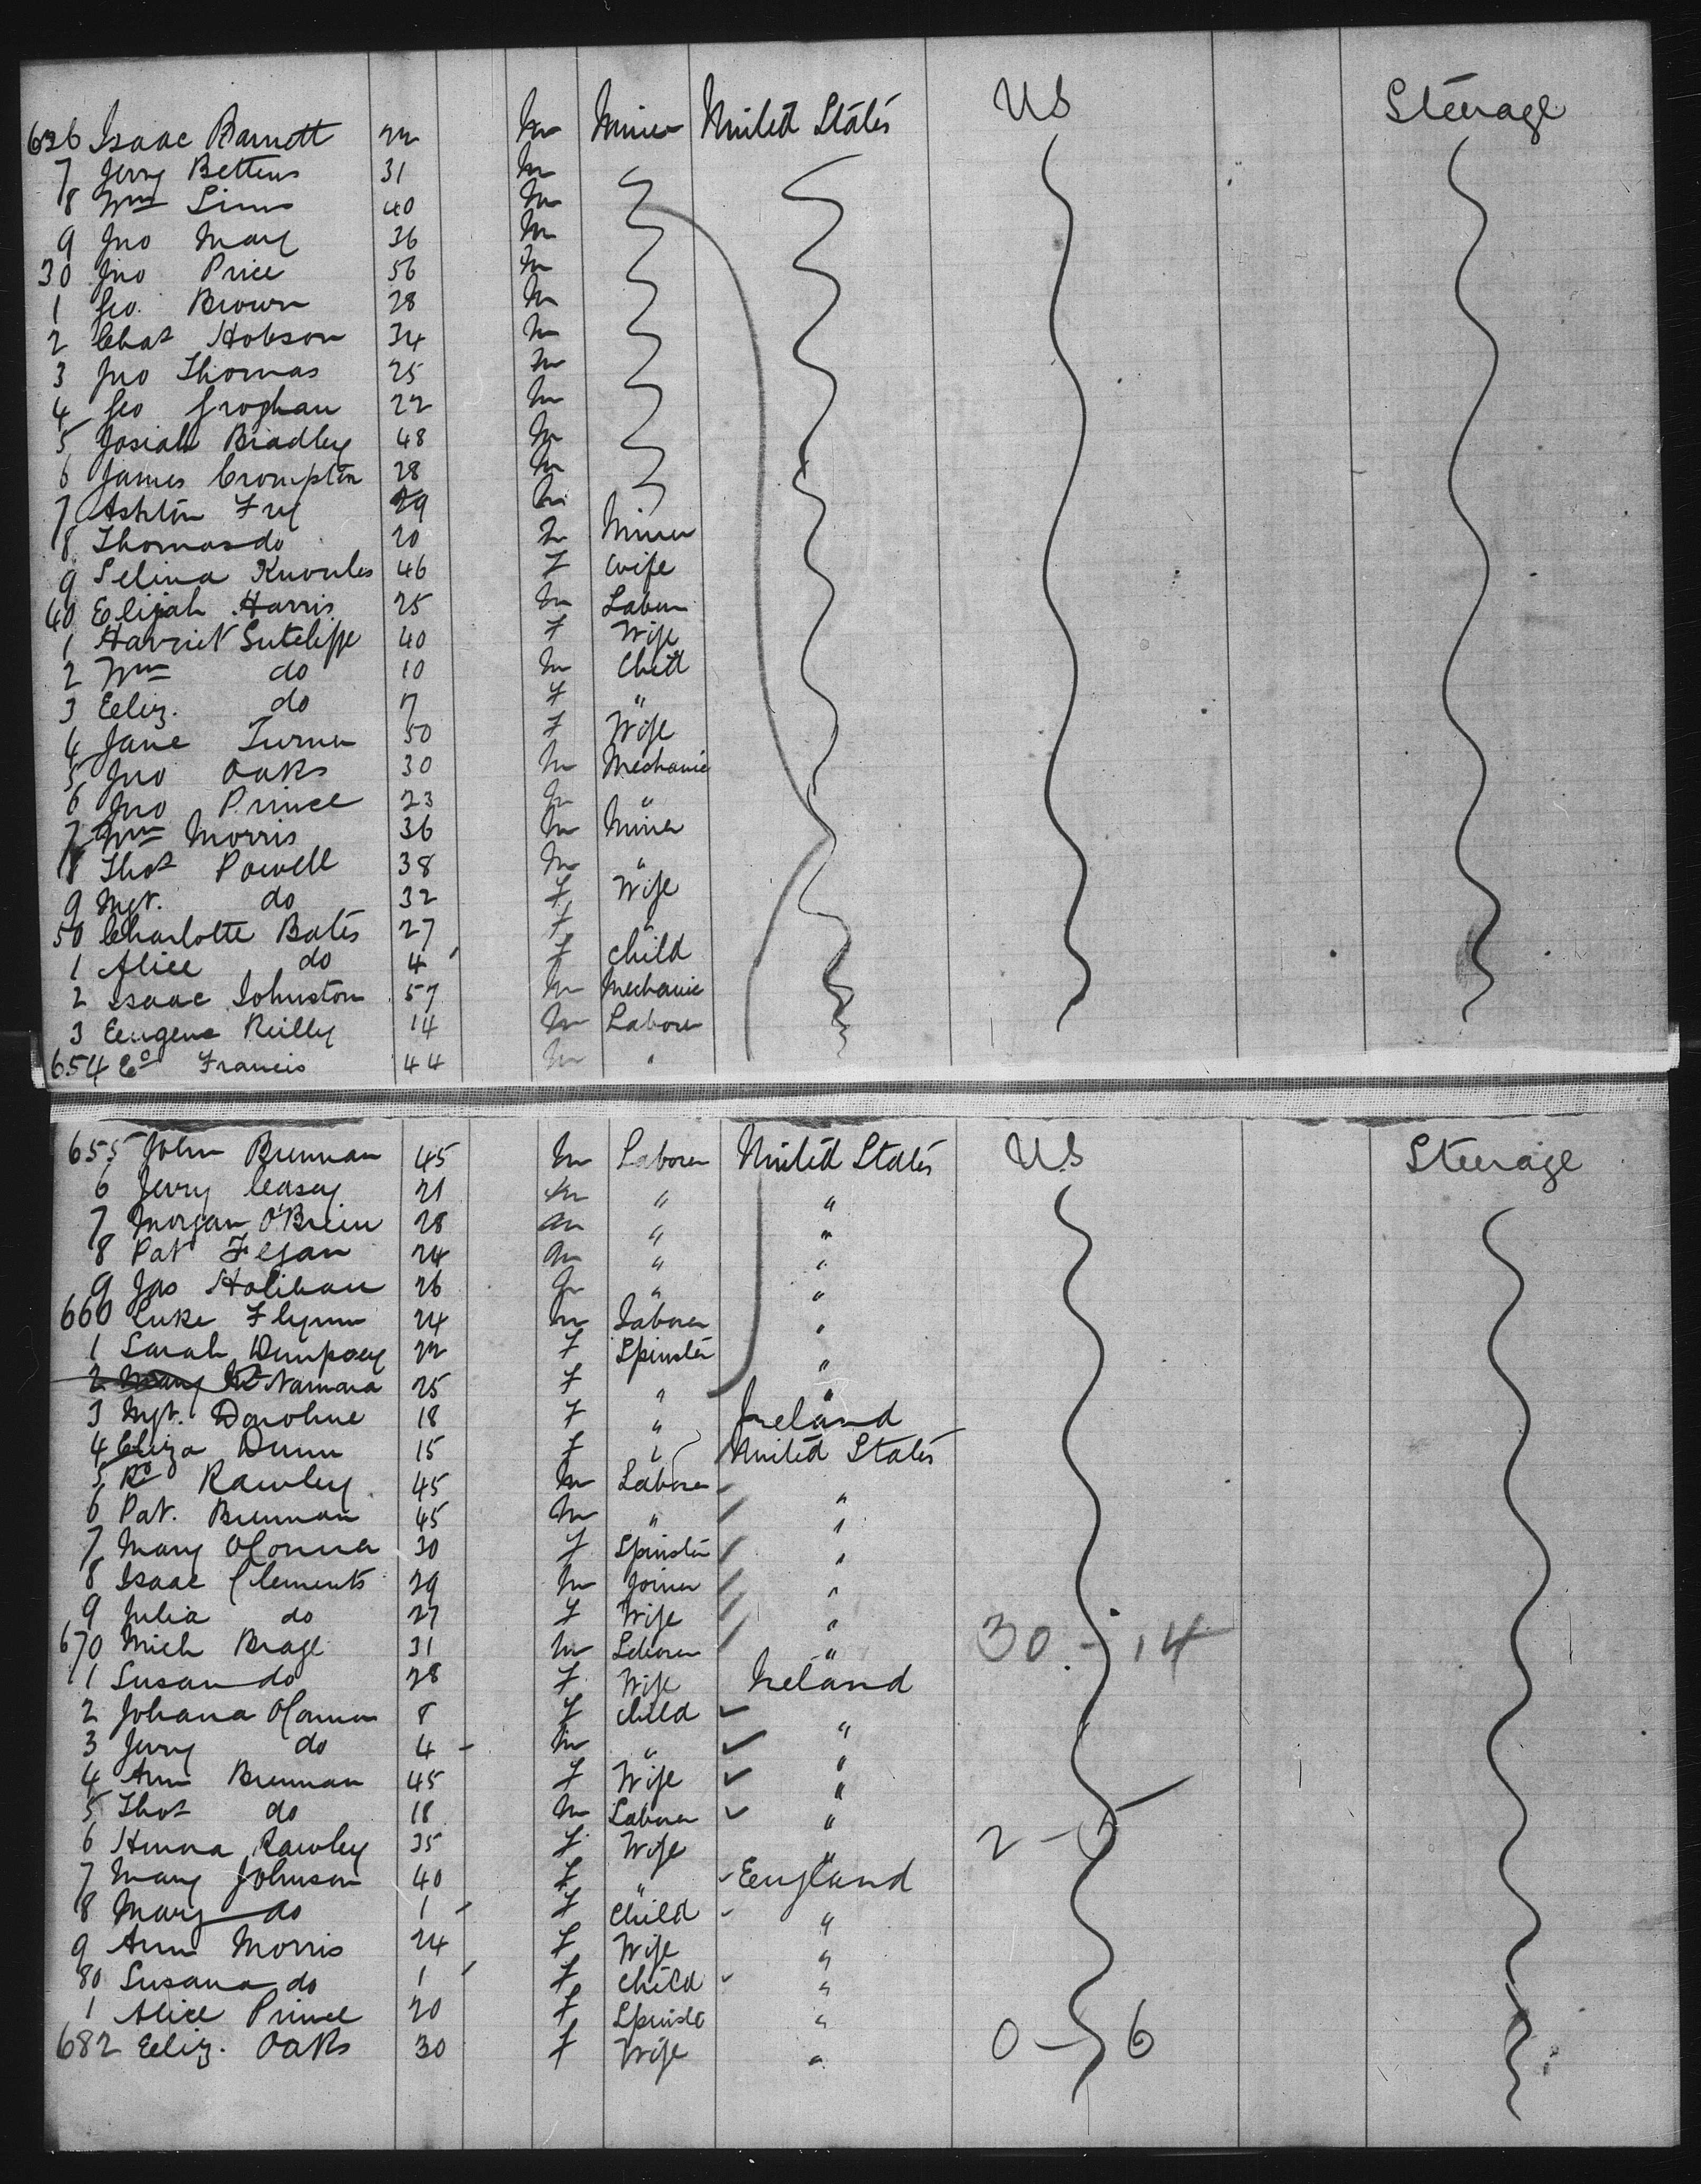 626 Isaac Barnett 22 m Miner United States US Steerage
7 Jerry Bettens 31 m
8 Wm Sims 40 m
9 Jno 36 m
30 Jno Price 56 m
1 Geo. Brown 28 m
2 Chas Hobson 34 m
3 Jno Thomas 25 m
4 Geo Groghan 22 m
5 Josiah Bradley 48 m
6 James Crompton 28 m
7 Ashton 29 m
8 Thomas do 20 m Miner
9 Selina Knowles 46 F Wife
40 Elijah Harris 25 m Labour
1 Harriet Sutcliffe 40 F Wife
2 Wm do 10 m Child
3 Eeliz. do 7 F "
4 Jane Turner 50 F Wife
5 Jno Oaks 30 m Mechanic
6 Jno Prince 23 m "
7 Wm Morris 36 m Miner
8 Thos Powell 38 m "
9 Mgt. do 32 F Wife
50 Charlotte Bates 27 F "
1 Alice do 4 F Child
2 Isaac Johnston 57 m Mechanic
3 Eeugene Reilly 14 m Laborer
654 Ed Francis 44 m "
655 John Brennan 45 m Laborer United States US Steerage
6 Jerry Ceasey 21 m " "
7 Morgan O'Brien 28 m " "
8 Pat Fegan 24 m " "
9 Jas Holihan 26 m " "
660 Luke Flynn 24 m Laborer "
1 Sarah Dempsey 22 F Spinster "
2 Mary McNamara 25 F " "
3 Mgt. Donohue 18 F " Ireland
4 Eliza Dunn 15 F " United States
5 Rd Rawley 45 m Laborer "
6 Pat. Brennan 45 m " "
7 Mary OConner 30 F Spinster "
8 Isaac Clements 29 m Joiner "
9 Julia do 27 F Wife "
670 Mich Brage 31 m Laborer " 30 - 14
1 Susan do 28 F Wife Ireland
2 Johana OConnor 8 F Child "
3 Jerry do 4 m " "
4 Ann Brennan 45 F Wife "
5 Thos do 18 m Laborer "
6 Hanna Rawley 35 F Wife " 2 - 5
7 Mary Johnson 40 F " Eengland
8 Mary do 1 F Child "
9 Ann Morris 24 F Wife "
80 Susana do 1 F Child "
1 Alice Prince 20 F Spinster "
682 Eeliz. Oaks 30 F Wife " 0 - 6